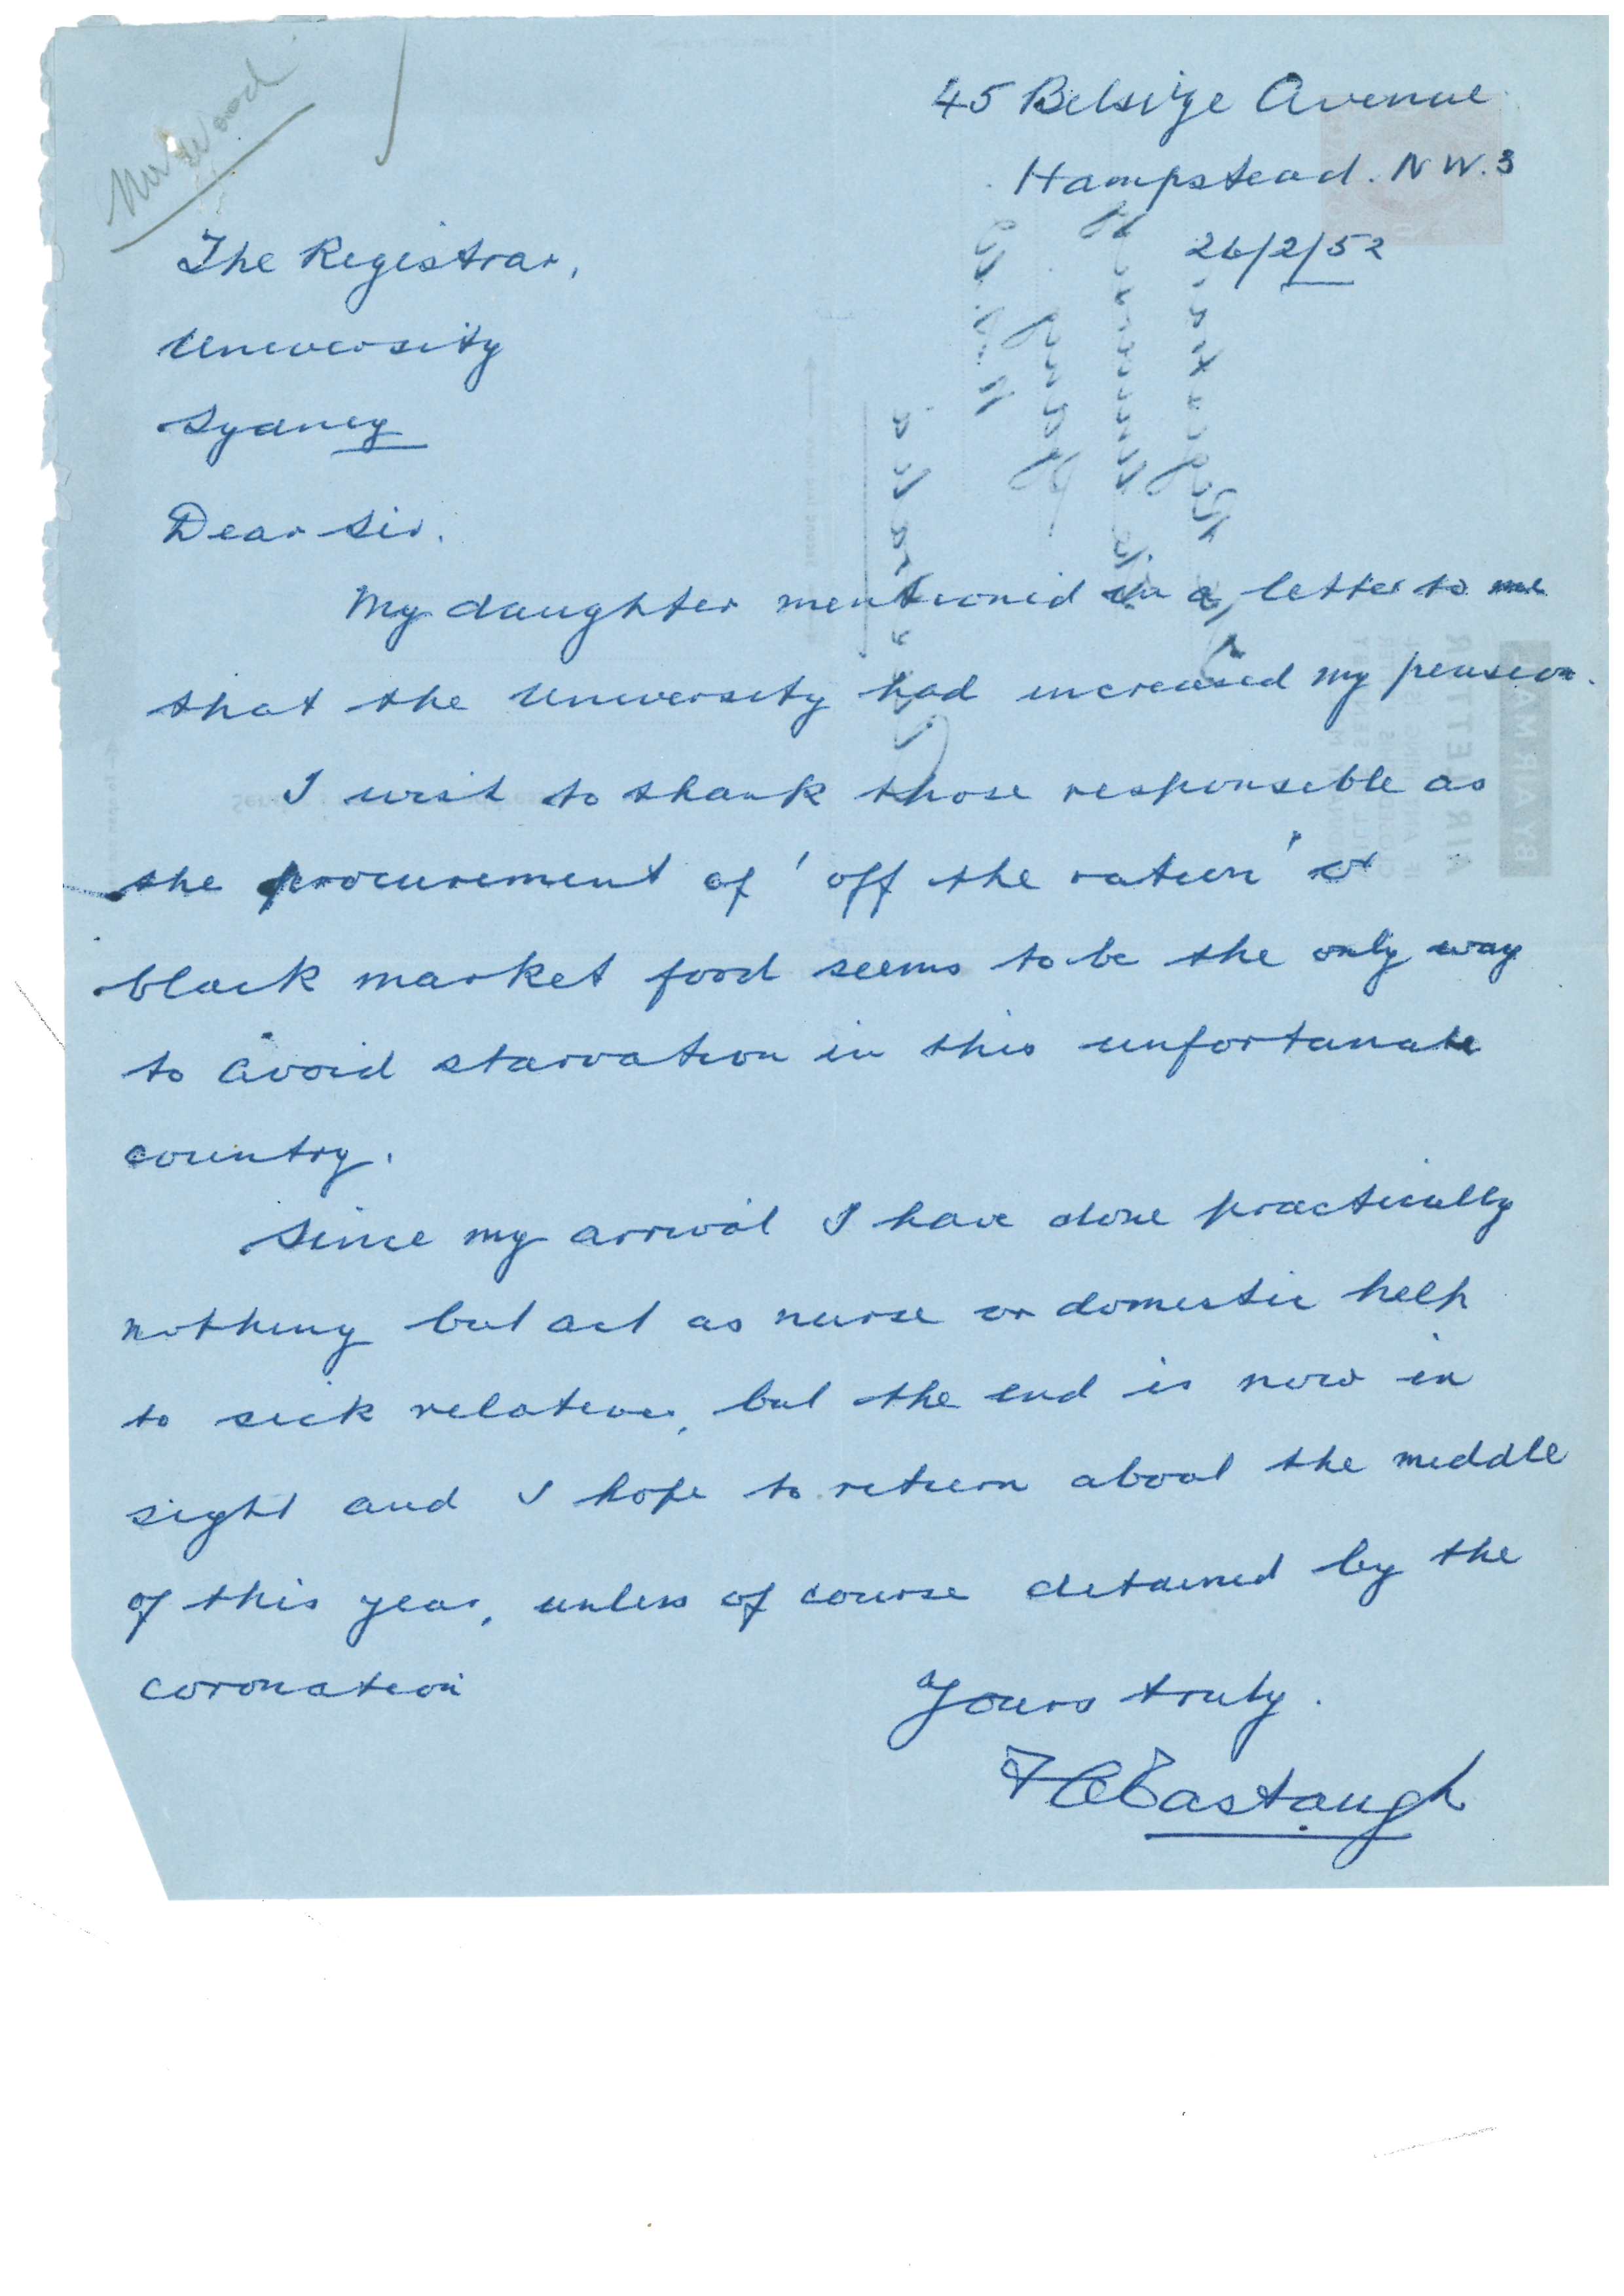 Mr Wood
45 Belsize Avenue
Hampstead. N W. 3
26/2/52
The Registrar,
University
Sydney
Dear Sir.
My daughter mentioned in a letter to me
that the University had increased my pension.
I wish to thank those responsible as
the procurement of 'off the ration' &
black market food seems to be the only way
to avoid starvation in this unfortunate
country.
Since my arrival I have done practically
nothing but act as nurse or domestic help
to sick relatives, but the end is now in
sight and I hope to return about the middle
of this year, unless of course detained by the
coronation
Yours truly.
Eastaugh
BY AIR MAIL
AIR LETTER